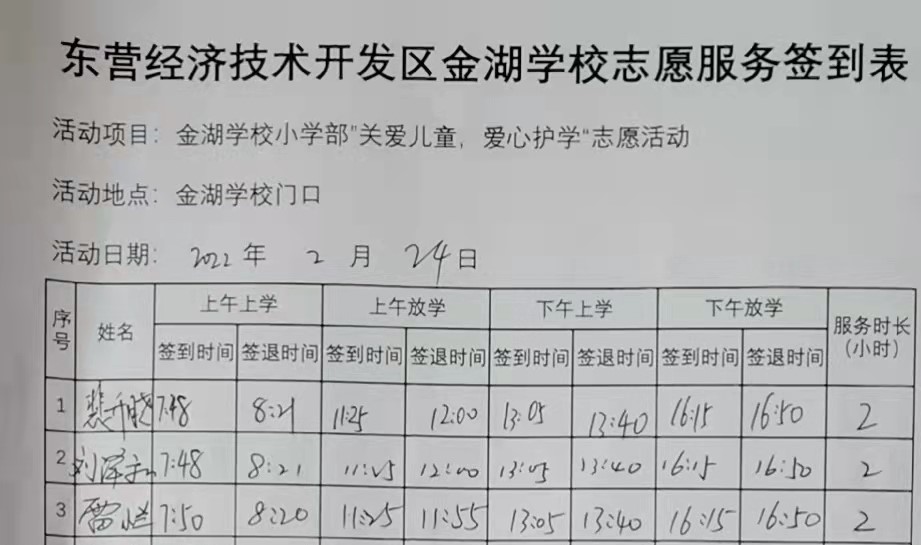 东营经济技术开发区金湖学校志愿服务签到表
活动项目：金湖学校小学部"关爱儿童，爱心护学"志愿活动
活动地点：金湖学校门口
活动日期：2022年 2月 24日
序号 姓名 上午上学 上午放学 下午上学 下午放学 服务时长(小时)
签到时间 签退时间 签到时间 签退时间 签到时间 签退时间 签到时间 签退时间
1 7:48 8:21 11:25 12:00 13:05 13:40 16:15 16:50 2
2 刘泽 7:48 8:21 11:25 12:00 13:05 13:40 16:15 16:50 2
3 雷 7:50 8:20 11:25 11:55 13:05 13:40 16:15 16:50 2